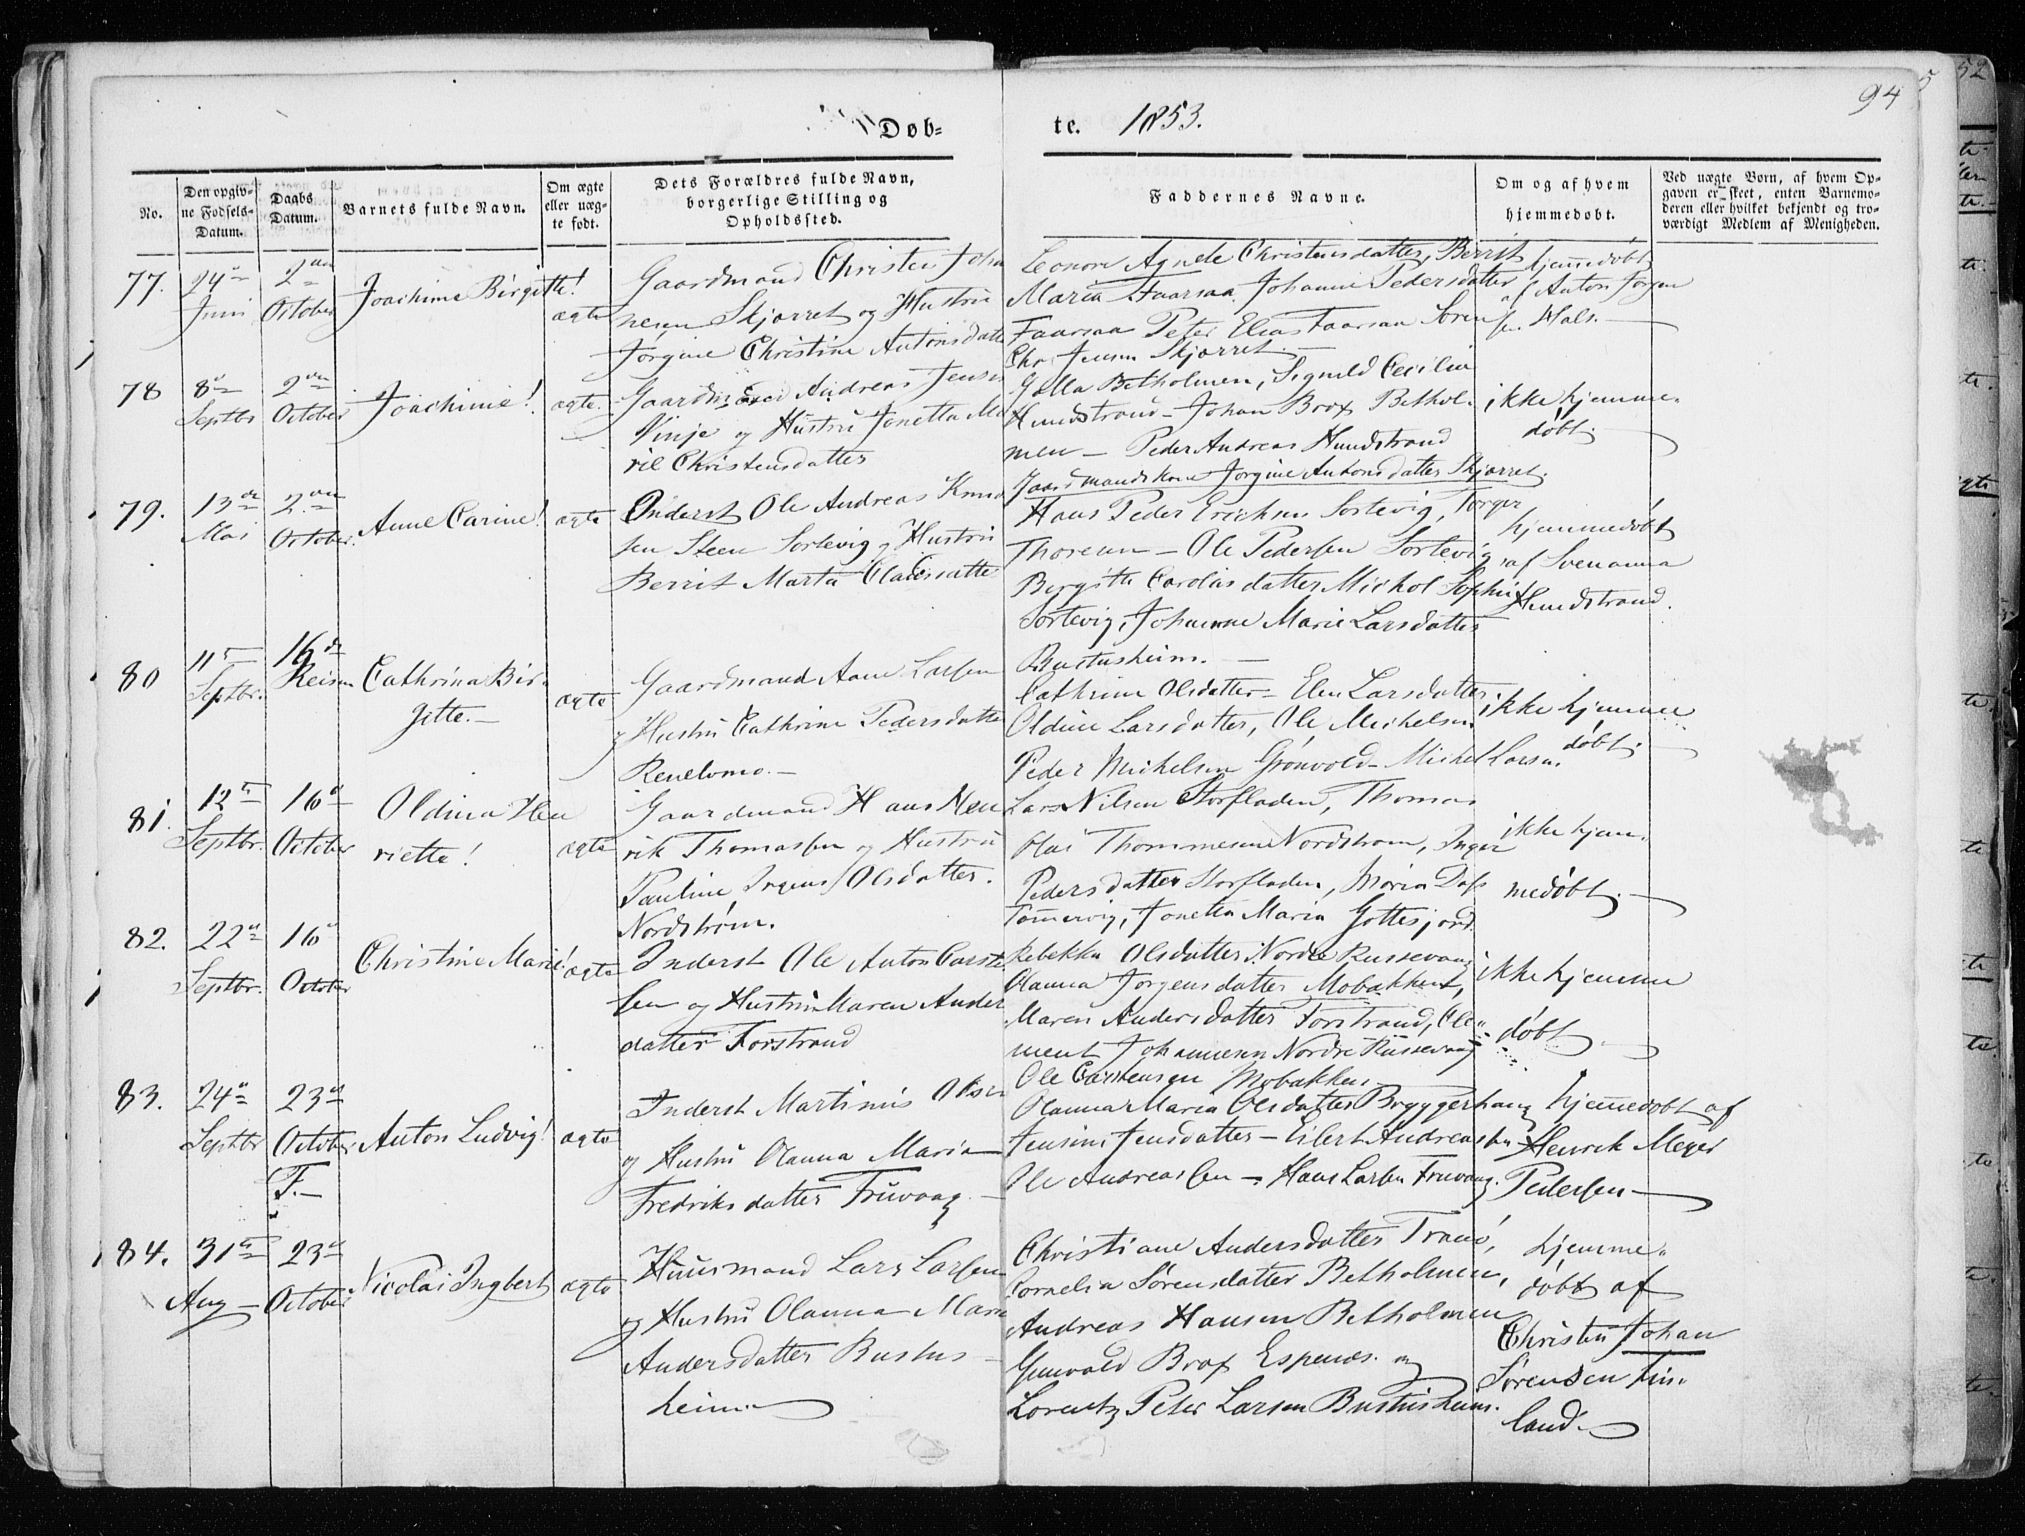 94
Døb-
te. 1853.
No.
Den opgiv-
ne Fødsels-
Datum.
Daabs
Datum.
Barnets fulde Navn.
Om ægte
eller uæg-
te født.
Dets Forældres fulde Navn,
borgerlige Stilling og
Opholdssted.
Faddernes Navne.
Om og af hvem
hjemmedøbt.
Ved uægte Børn, af hvem Op-
gaven er skeet, enten Barnemo-
deren eller hvilket bekjendt og tro-
værdigt Medlem af Menigheden.
77.
24de
Juni
2den
October
Joachime Birgitte!
ægte
Gaardmand Christen Joha
nesen Skjærret og Hustru
Jørgine Christine Antonsdatter
Leonore Agnete Christensdatter, Berrit
Maria Faarsaa Johanne Pedersdatter
Faarsaa Peter Elias Faarsaa Søren
Chr. Jensen Skjærret.
hjemmedøbt
af Anton Jørgen
Hals.
78
8de
Septbr
2den
October
Joachimie!
ægte.
Gaardmand Andreas Jensen
Vinje og Hustru Jonetta Ma
rie Christensdatter
Bethholmen, Cecilia
Hundstrand - Johan Brox Bethol-
men - Peder Andreas Hundstrand
Gaardmandskone Jørgine Antonsdatter Skjærret.
ikke hjemme-
døbt.
79.
13de
Mai
2den
October.
Anne Carine!
ægte
Inderst Ole Andreas Knud
sen Steen Sortevig og Hustru
Berrit Marta Clausdatter
Hans Peder Erichsen Sortevig, Torger
Thoresen - Ole Pedersen Sortevig
Bergitte Carolusdatter Michol Sophie
Sortevig, Johanne Marie Larsdatter
Bustusheim.
hjemmedøbt
af Svenanna
Hundstrand.
80
11te
Septbr.
16de
Reisen
Cathrina Bir-
gitte.
ægte
Gaardmand Aane Larsen
og Hustru Cathrine Pedersdatter
Renelvmo.
Cathrine Olsdatter - Elen Larsdatter,
Oldine Larsdatter, Ole Michelsen
Peder Michelsen Grønvold - Michel Larsen.
ikke hjemme
døbt.
81.
12te
Septbr.
16de
October
Oldina Hen
riette!
ægte
Gaardmand Hans Hen
rik Thomassen og Hustru
Pauline Irgens Olsdatter.
Nordstrøm.
Lars Nilsen Storfladen, Thomas
Olai Thommesen Nordstrøm, Inger
Pedersdatter Storfladen, Maria Dass
Tømmervig, Jonetta Maria Gottesjord
ikke hjem-
medøbt.
82.
22de
Septbr.
16de
October
Christine Marie!
ægte
Inderst Ole Anton Carste
sen og Hustru Maren Anders
datter Forstrand
Rebekka Olsdatter Nordre Russevaag
Olanna Jørgensdatter Mobakken,
Maren Andersdatter Forstrand, Cle-
ment Johannesen Nordre Russevaag
Ole Carstensen Mobakken
ikke hjemme
døbt
83.
24de
Septbr
23de
October
F.
Anton Ludvig!
ægte
Inderst Martinus Olsen
og Hustru Olanna Maria
Fredriksdatter Fruvaag.
Olanna Maria Olsdatter Bryggerhaug
Jensine Jensdatter - Eilert Andreassen
Ole Andreassen - Hans Larsen Fruvaag.
hjemmedøbt af
Henrik Meyer
Pedersen
84.
31te
Aug
23de
October
Nicolai Ingbert
ægte
Huusmand Lars Larsen
og Hustru Olanna Maria
Andersdatter Bustus-
heim
Christiane Andersdatter Tranø,
Cornelia Sørensdatter Betholmen,
Andreas Hansen Betholmen
Gunvald Brox Espenes. og
Lorentz Peter Larsen Bustusheim.
hjemme-
døbt af
Christen Johan
Sørensen Fin-
land.